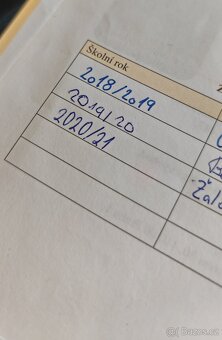 Školní rok
2018/2019
2019/20
2020/21
Bazos.cz